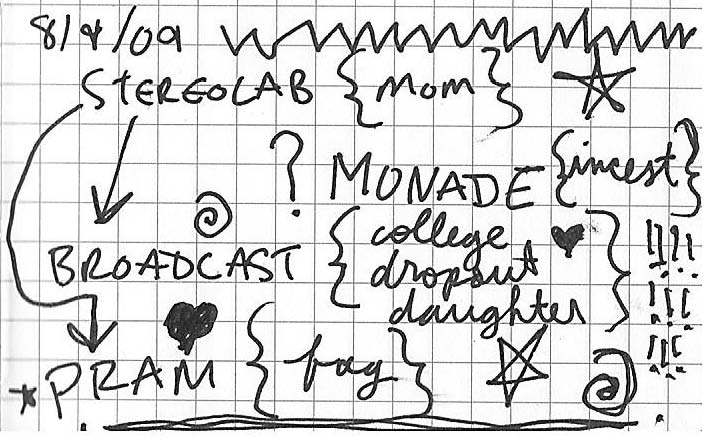 8/4/09
STEREOLAB {mom}
? MONADE {incest}
BROADCAST {college dropout daughter} !!!! !!! !!!
*PRAM {fag}